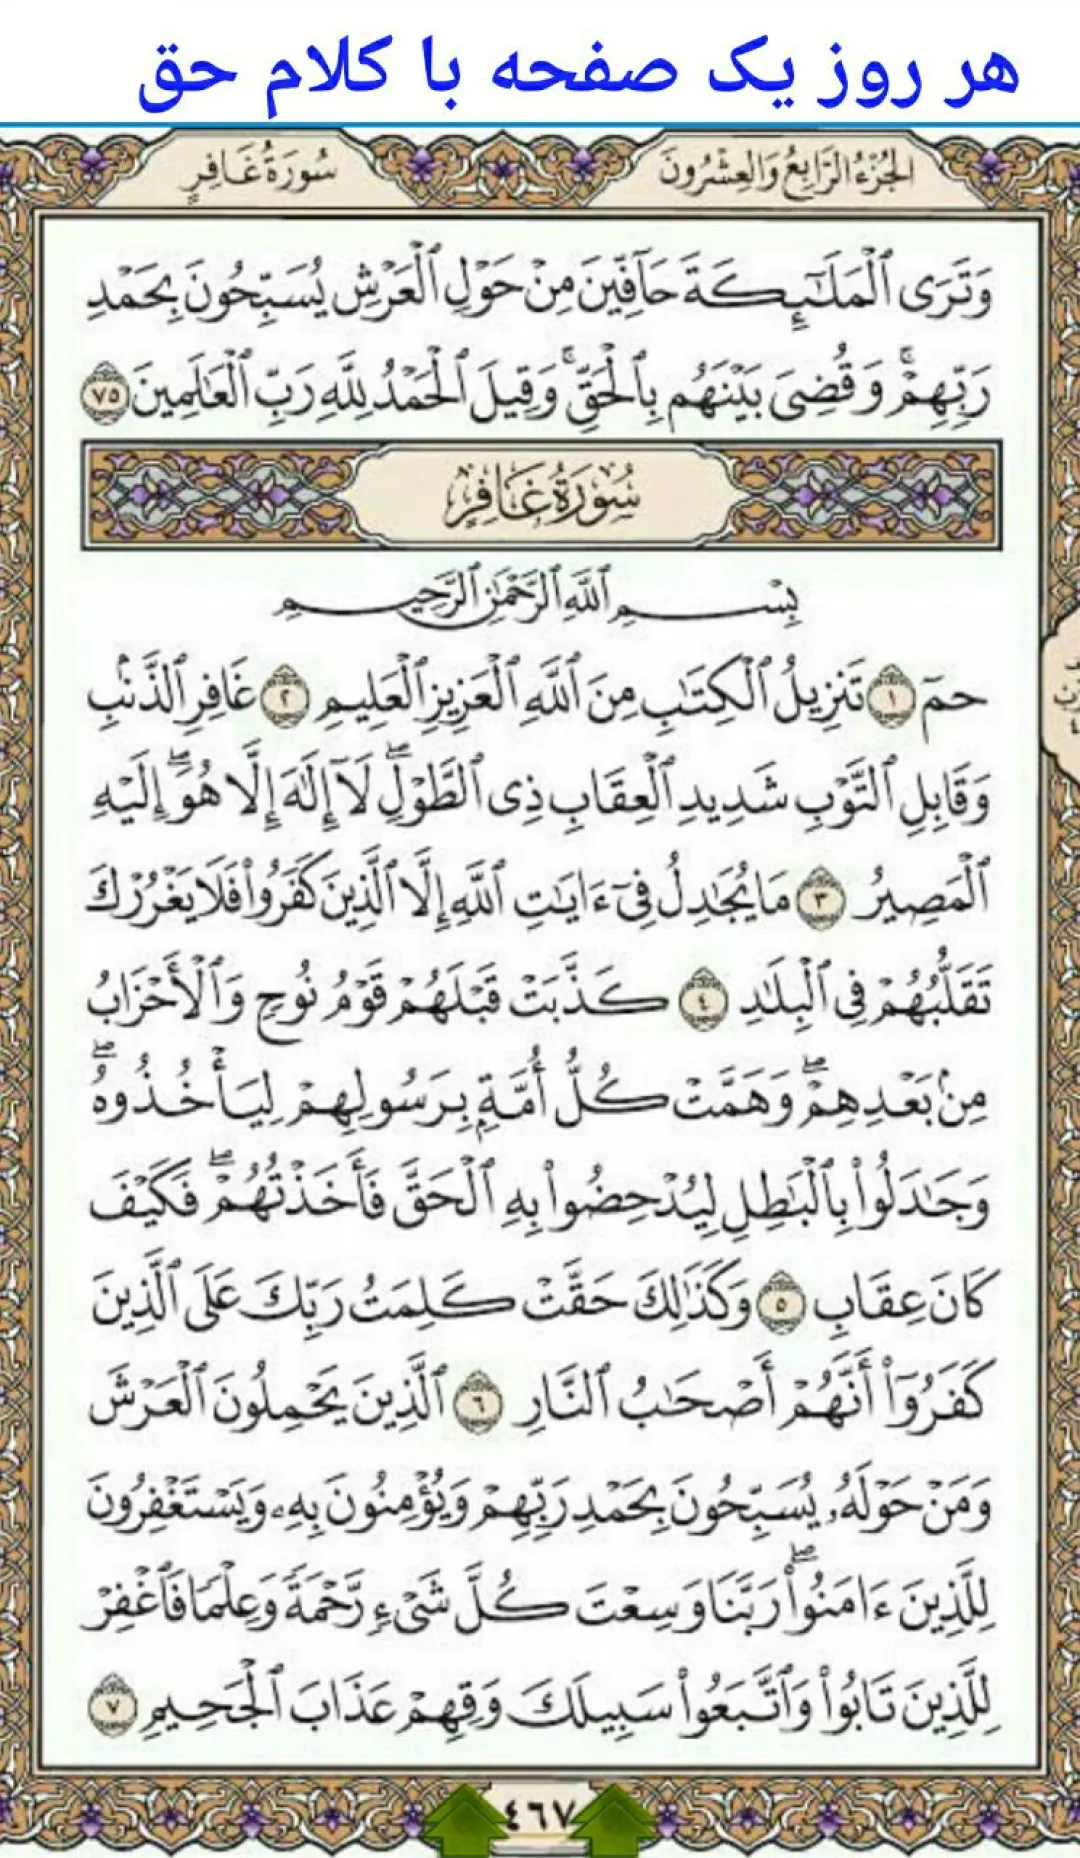 هر روز یک صفحه با کلام حق
الجُزْءُ الرَّابِعُ وَالعِشْرُونَ
سُورَةُ غَافِرٍ
وَتَرَى ٱلْمَلَـٰٓئِكَةَ حَآفِّينَ مِنْ حَوْلِ ٱلْعَرْشِ يُسَبِّحُونَ بِحَمْدِ
رَبِّهِمْۚ وَقُضِىَ بَيْنَهُم بِٱلْحَقِّۚ وَقِيلَ ٱلْحَمْدُ لِلَّهِ رَبِّ ٱلْعَـٰلَمِينَ ٧٥
سُورَةُ غَافِرٍ
بِسْمِ ٱللَّهِ ٱلرَّحْمَـٰنِ ٱلرَّحِيمِ
حمٓ ١ تَنزِيلُ ٱلْكِتَـٰبِ مِنَ ٱللَّهِ ٱلْعَزِيزِ ٱلْعَلِيمِ ٢ غَافِرِ ٱلذَّنۢبِ
وَقَابِلِ ٱلتَّوْبِ شَدِيدِ ٱلْعِقَابِ ذِى ٱلطَّوْلِۖ لَآ إِلَـٰهَ إِلَّا هُوَۖ إِلَيْهِ
ٱلْمَصِيرُ ٣ مَا يُجَـٰدِلُ فِىٓ ءَايَـٰتِ ٱللَّهِ إِلَّا ٱلَّذِينَ كَفَرُوا۟ فَلَا يَغْرُرْكَ
تَقَلُّبُهُمْ فِى ٱلْبِلَـٰدِ ٤ كَذَّبَتْ قَبْلَهُمْ قَوْمُ نُوحٍ وَٱلْأَحْزَابُ
مِنۢ بَعْدِهِمْۖ وَهَمَّتْ كُلُّ أُمَّةٍۭ بِرَسُولِهِمْ لِيَأْخُذُوهُۖ
وَجَـٰدَلُوا۟ بِٱلْبَـٰطِلِ لِيُدْحِضُوا۟ بِهِ ٱلْحَقَّ فَأَخَذْتُهُمْۖ فَكَيْفَ
كَانَ عِقَابِ ٥ وَكَذَٰلِكَ حَقَّتْ كَلِمَتُ رَبِّكَ عَلَى ٱلَّذِينَ
كَفَرُوٓا۟ أَنَّهُمْ أَصْحَـٰبُ ٱلنَّارِ ٦ ٱلَّذِينَ يَحْمِلُونَ ٱلْعَرْشَ
وَمَنْ حَوْلَهُۥ يُسَبِّحُونَ بِحَمْدِ رَبِّهِمْ وَيُؤْمِنُونَ بِهِۦ وَيَسْتَغْفِرُونَ
لِلَّذِينَ ءَامَنُوا۟ۖ رَبَّنَا وَسِعْتَ كُلَّ شَىْءٍ رَّحْمَةً وَعِلْمًا فَٱغْفِرْ
لِلَّذِينَ تَابُوا۟ وَٱتَّبَعُوا۟ سَبِيلَكَ وَقِهِمْ عَذَابَ ٱلْجَحِيمِ ٧
٤٦٧